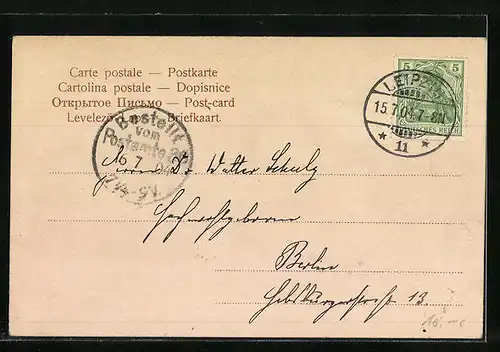 Carte postale — Postkarte
Cartolina postale — Dopisnice
Открытое Письмо — Post-card
Levelező Briefkaart
5 5
LEIPZIG
15.7.04. 7-8N.
* 11 *
DEUTSCHES REICH
Bestellt
vom
Postamte
16 7 04
Herrn Dr. Walter Schulz
Hochwohlgeboren
Berlin
Habsburgerstraße 13.
10.–